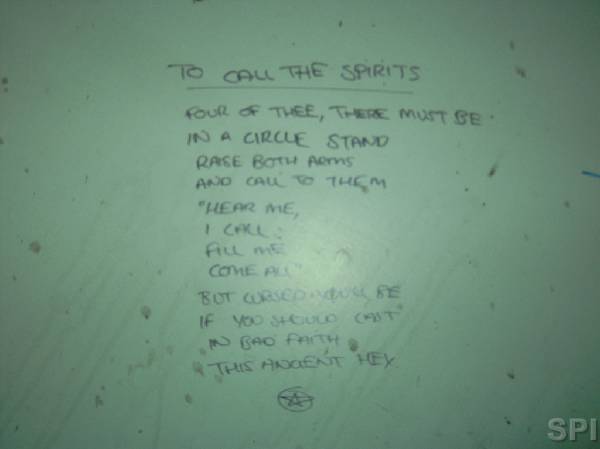 TO CALL THE SPIRITS
FOUR OF THEE, THERE MUST BE.
IN A CIRCLE STAND
RAISE BOTH ARMS
AND CALL TO THEM
"HEAR ME,
I CALL;
FILL ME
COME ALL"
BUT CURSED YOU'LL BE
IF YOU SHOULD CAST
IN BAD FAITH
THIS ANCIENT HEX.
SPI